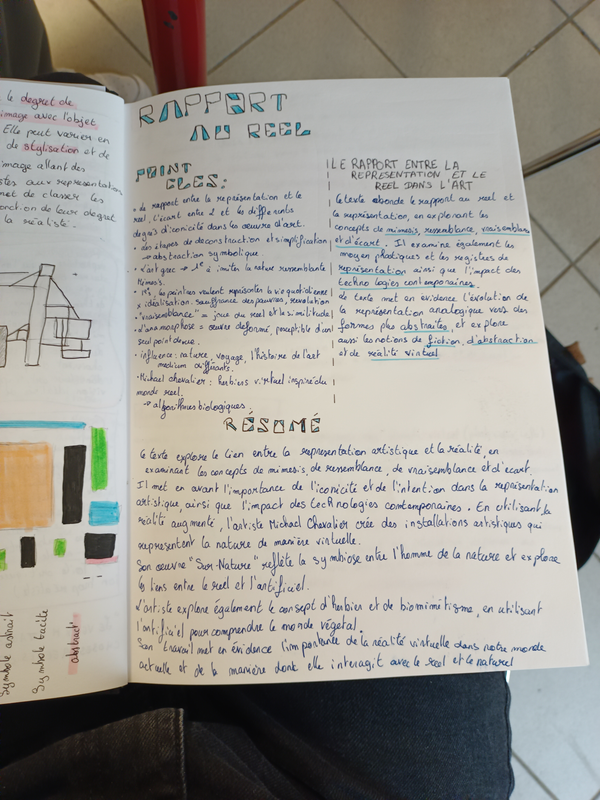 le degret de
image avec l'objet
Elle peut varier en
de stylisation et de
image allant des
aux representation
met de classer les
onction de leur degret
la réaliste.
Symbole abstrait
Symbole tacite
abstract
RAPPORT
AU REEL
POINT
CLES:
• le rapport entre la representation et le
réel, l'écart entre 2 et les différents
degrés d'iconicité dans les œuvre d'art.
• les étapes de deconstruction et simplification
→ abstraction symbolique
• L'art grec → 1er à imiter la nature ressemblante
Mimesis.
• 19s les peintres veulent représenter la vie quotidienne
x idéalisation. souffrance des pauvres, revolution
• "vraisemblance" = joue du réel et la similitude
• d'anamorphose = œuvre deformé, perceptible d'un
seul point de vue.
• influence: nature, voyage, l'histoire de l'art
medium différants.
• Michael chevalier: herbiers virtuel inspiré du
monde réel.
→ algorithmes biologiques.
LE RAPPORT ENTRE LA
REPRÉSENTATION ET LE
REEL DANS L'ART
Le texte aborde le rapport au reel et
la représentation, en explorant les
concepts de mimesis, ressemblance, vraisemblance
et d'écart. Il examine également les
moyen plastiques et les registres de
représentation ainsi que l'impact des
technologies contemporaines.
Le texte met en évidence l'évolution de
la représentation analogique vers des
formes plus abstraites, et explore
aussi les notions de fiction, d'abstraction
et de réalité virtuel
RÉSOMÉ
Le texte explore le lien entre la représentation artistique et la réalité, en
examinant les concepts de mimesis, de ressemblance, de vraisemblance et d'écart.
Il met en avant l'importance de l'iconicité et de l'intention dans la représentation
artistique, ainsi que l'impact des technologies contemporaines. En utilisant la
réalité augmenté, l'artiste Michael Chevalier crée des installations artistiques qui
représentent la nature de manière virtuelle.
Son œuvre "Sur-Nature" reflète la symbiose entre l'homme de la nature et explore
les liens entre le reel et l'artificiel.
L'artiste explore également le consept d'herbier et de biomimétisme, en utilisant
l'artificiel pour comprendre le monde végétal.
Son travail met en évidence l'importante de la réalité virtuelle dans notre monde
actuelle et de la manière dont elle interagit avec le reel et le naturel